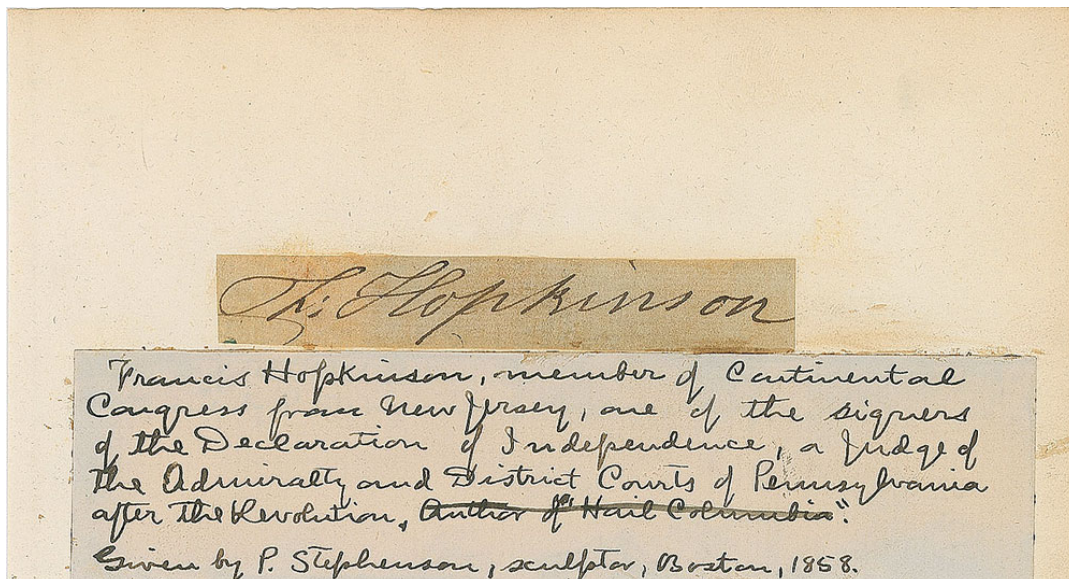 Fr: Hopkinson
Francis Hopkinson, member of Continental
Congress from New Jersey, one of the signers
of the Declaration of Independence, a Judge of
the Admiralty and District Courts of Pennsylvania
after the Revolution, Author of "Hail Columbia".
Given by P. Stephenson, sculptor, Boston, 1858.